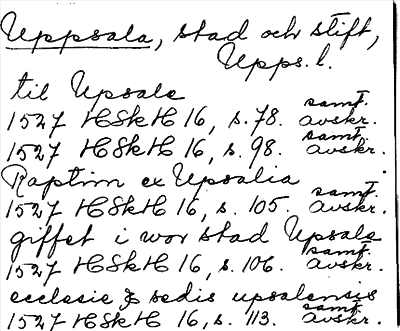 Uppsala, stad och stift,
Upps. l.
til Upsale
1527 HSkH 16, s. 78. samt. avskr.
1527 HSkH 16, s. 98. samt. avskr.
Raptim ex Upsalia
1527 HSkH 16, s. 105. samt. avskr.
giffet i wor stad Upsale
1527 HSkH 16, s. 106. samt. avskr.
ecclesie & sedis upsalensis
1527 HSkH 16, s. 113. samt. avskr.